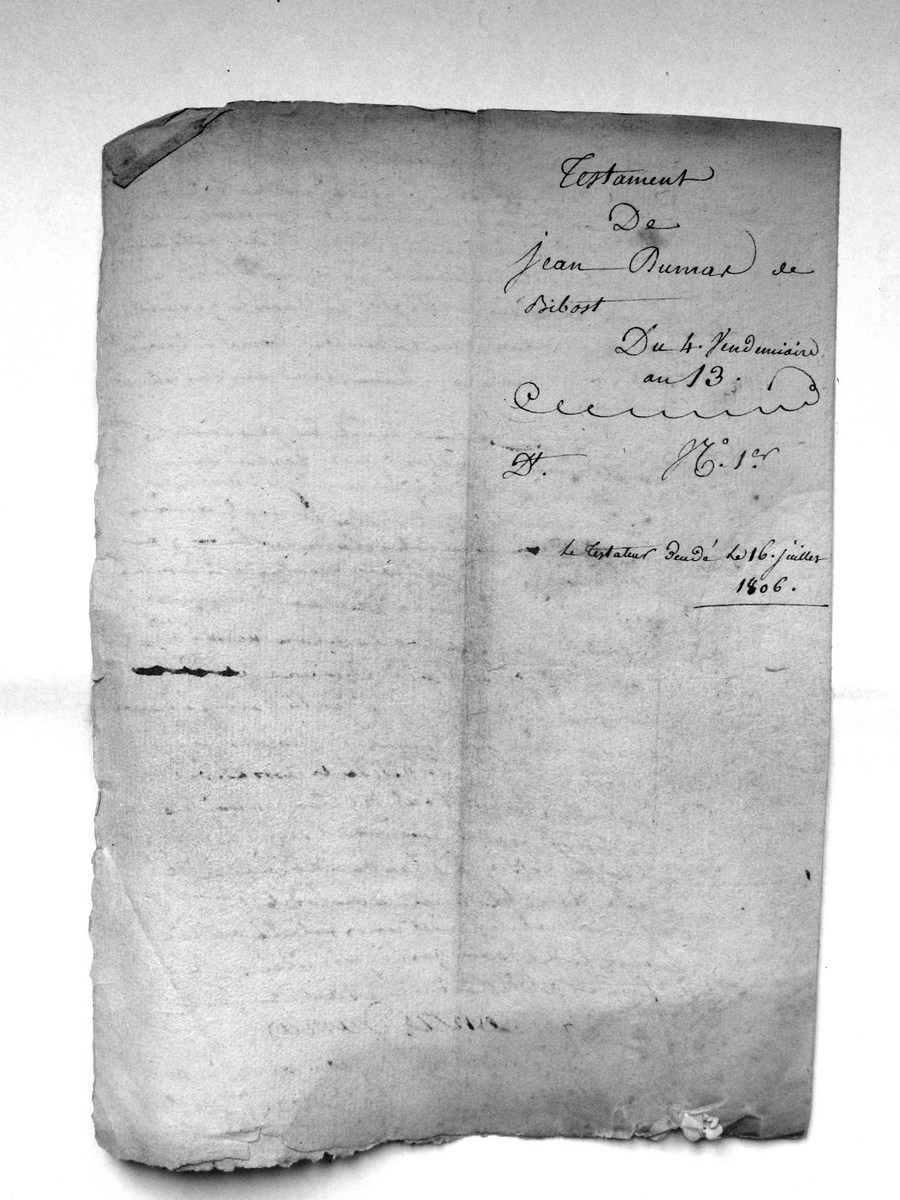 Testament
De
jean Dumas de
Bibost
Du 4. Vendemiaire
an 13.
Dt. No. 1er
Le testateur décédé le 16. juillet
1806.